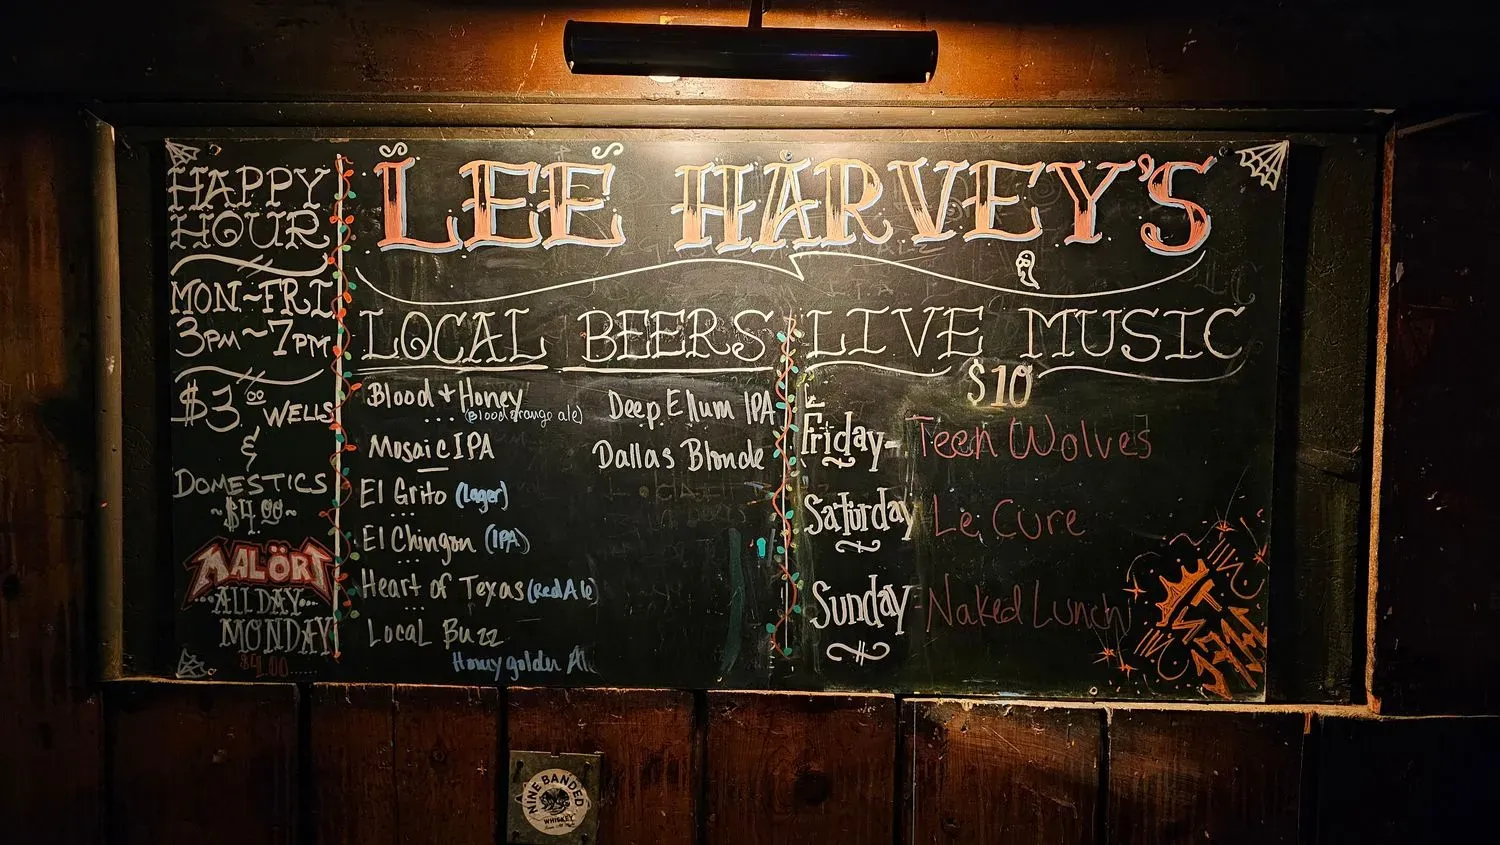 LEE HARVEY'S
HAPPY
HOUR
MON~FRI
3PM~7PM
$3.00 WELLS
&
DOMESTICS
~$4.00~
MALÖRT
ALL DAY
MONDAY
$4.00
LOCAL BEERS
Blood + Honey
(Blood orange ale)
Mosaic IPA
El Grito (Lager)
El Chingon (IPA)
Heart of Texas (Red Ale)
Local Buzz
Honey golden Ale
Deep Ellum IPA
Dallas Blonde
LIVE MUSIC
$10
Friday- Teen Wolves
Saturday Le Cure
Sunday- Naked Lunch
NINE BANDED
WHISKEY